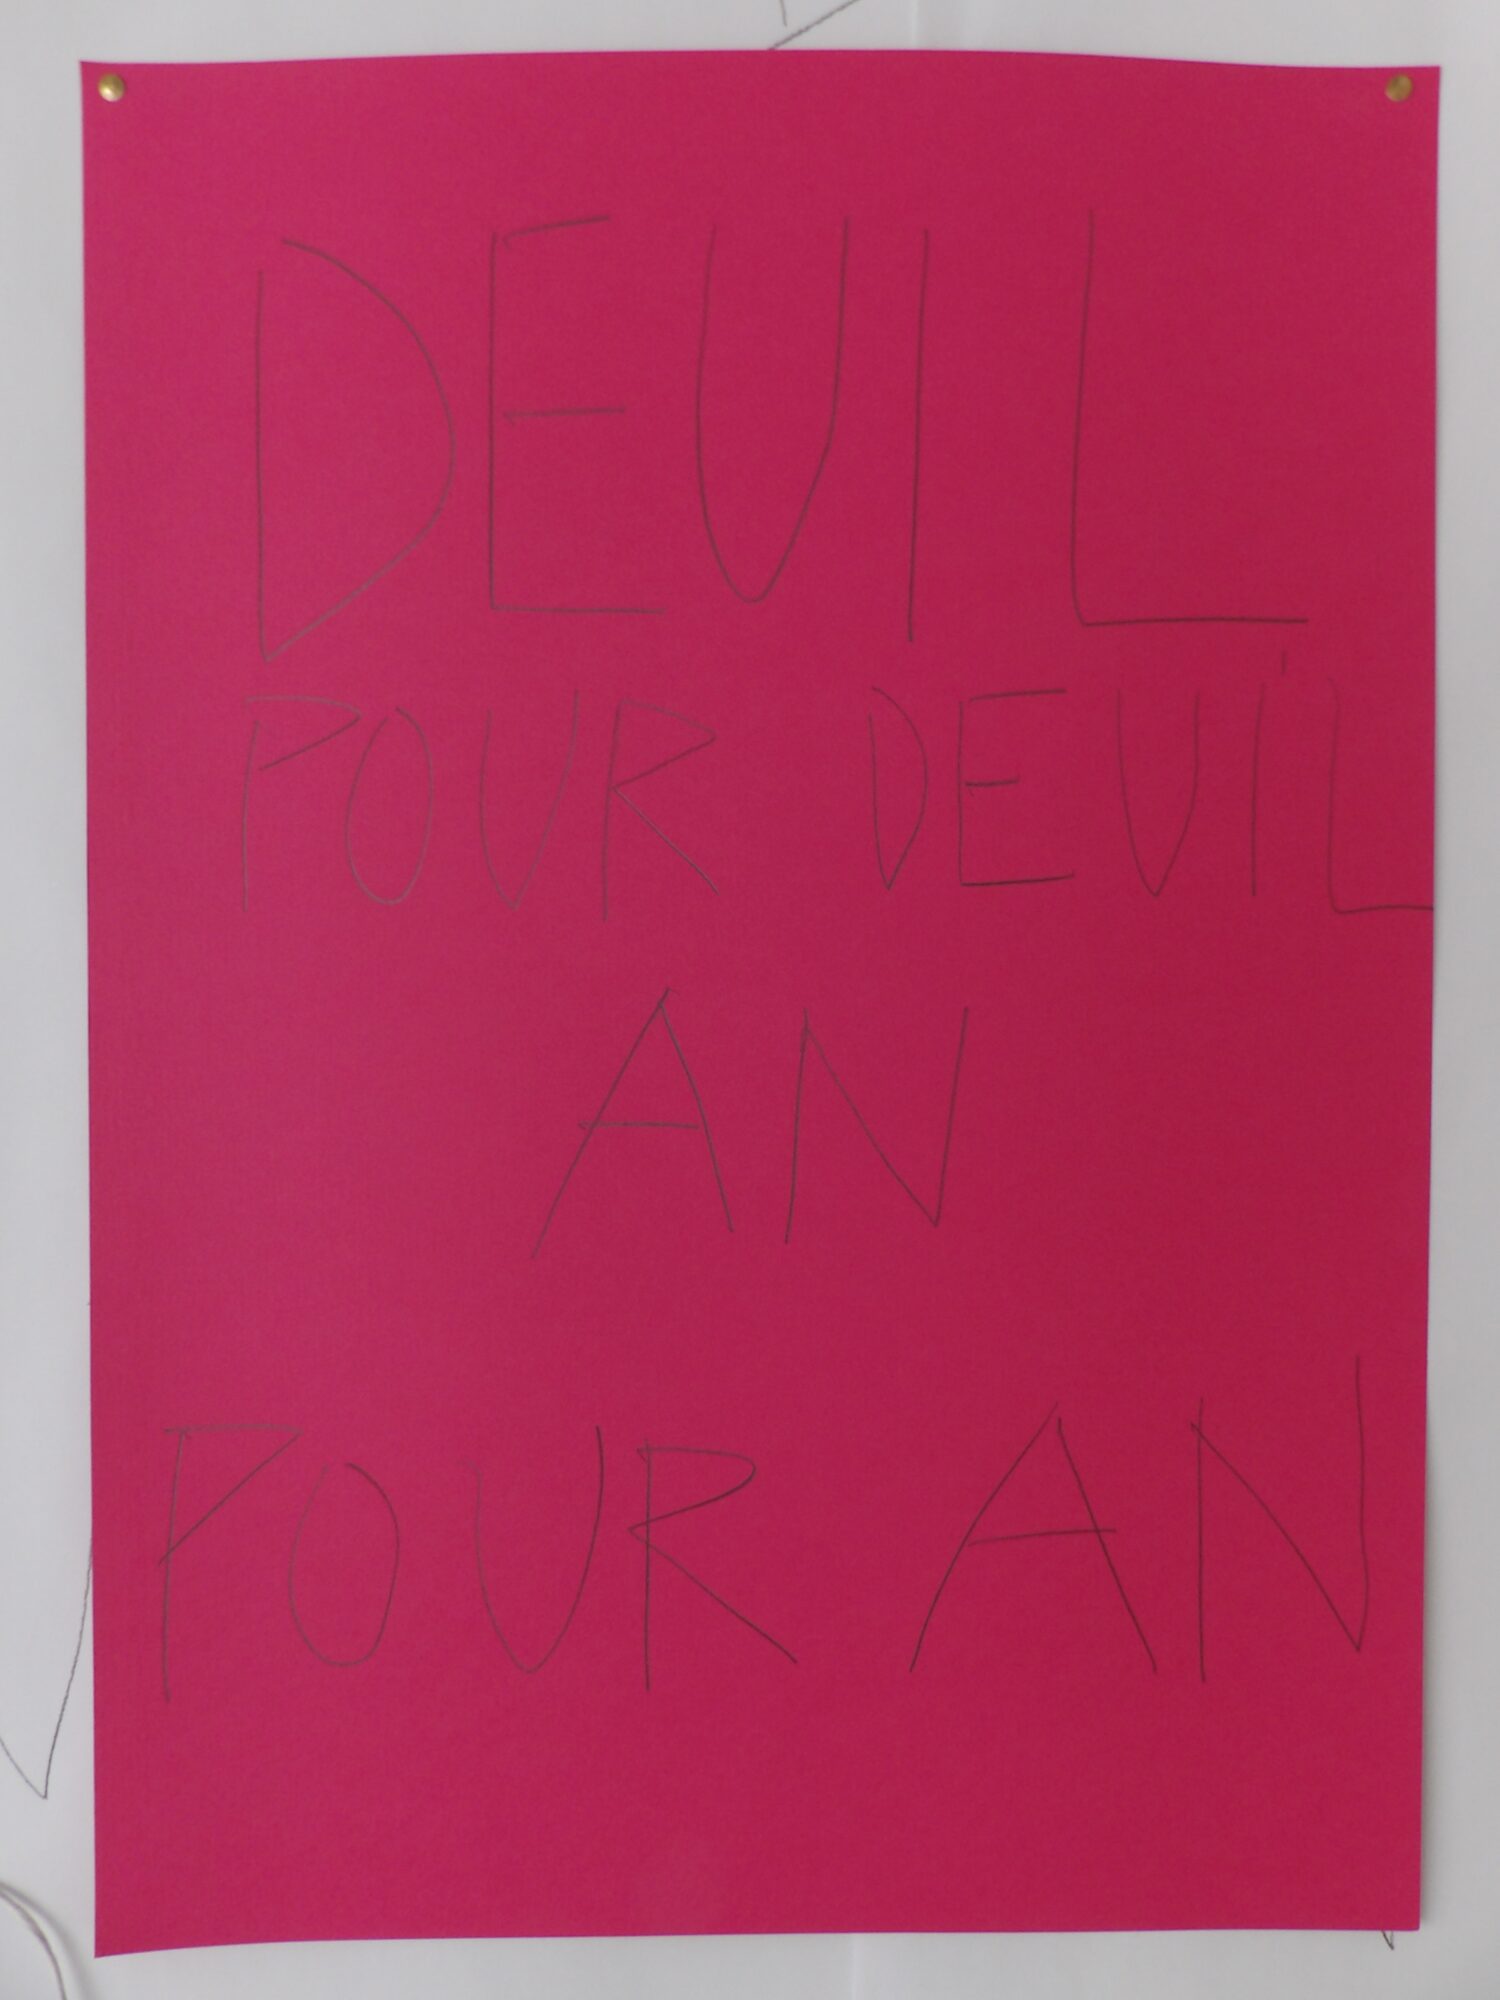 DEUIL
POUR DEUIL
AN
POUR AN